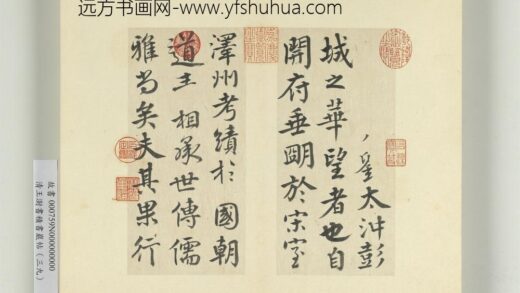 远方书画网-www.yfshuhua.com
太沖彭
城之華望者也自
開府垂朙於宋室
澤州考績於 國朝
道主 相承世傳儒
雅尚矣夫其果行
故書 000759N000000000
清王澍書積書巖帖(三九)